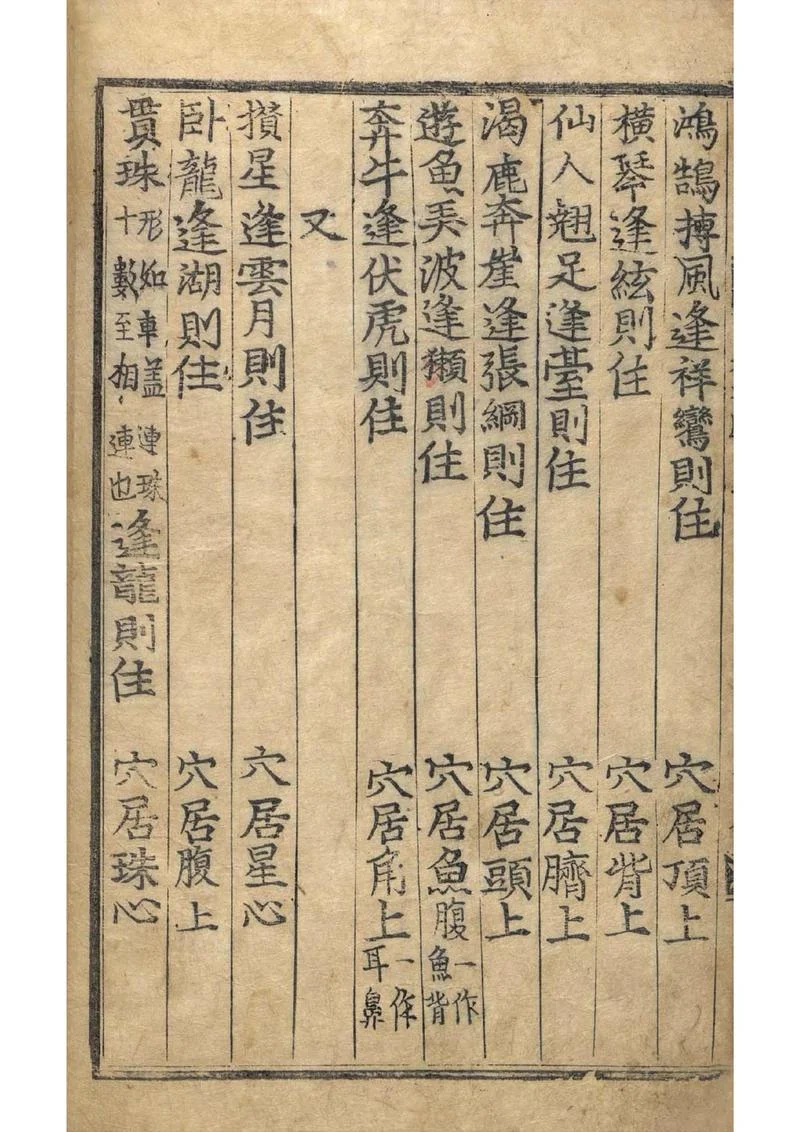 鴻鵠搏風逢祥鸞則住 穴居頂上
橫琴逢絃則住 穴居背上
仙人翹足逢臺則住 穴居臍上
渴鹿奔崖逢張網則住 穴居頭上
遊魚美波逢獺則住 穴居魚腹一作魚背
奔牛逢伏虎則住 穴居角上一作耳鼻
又
攢星逢雲月則住 穴居星心
卧龍逢湖則住 穴居腹上
貫珠形如車盖連珠十數至相連也逢龍則住 穴居珠心